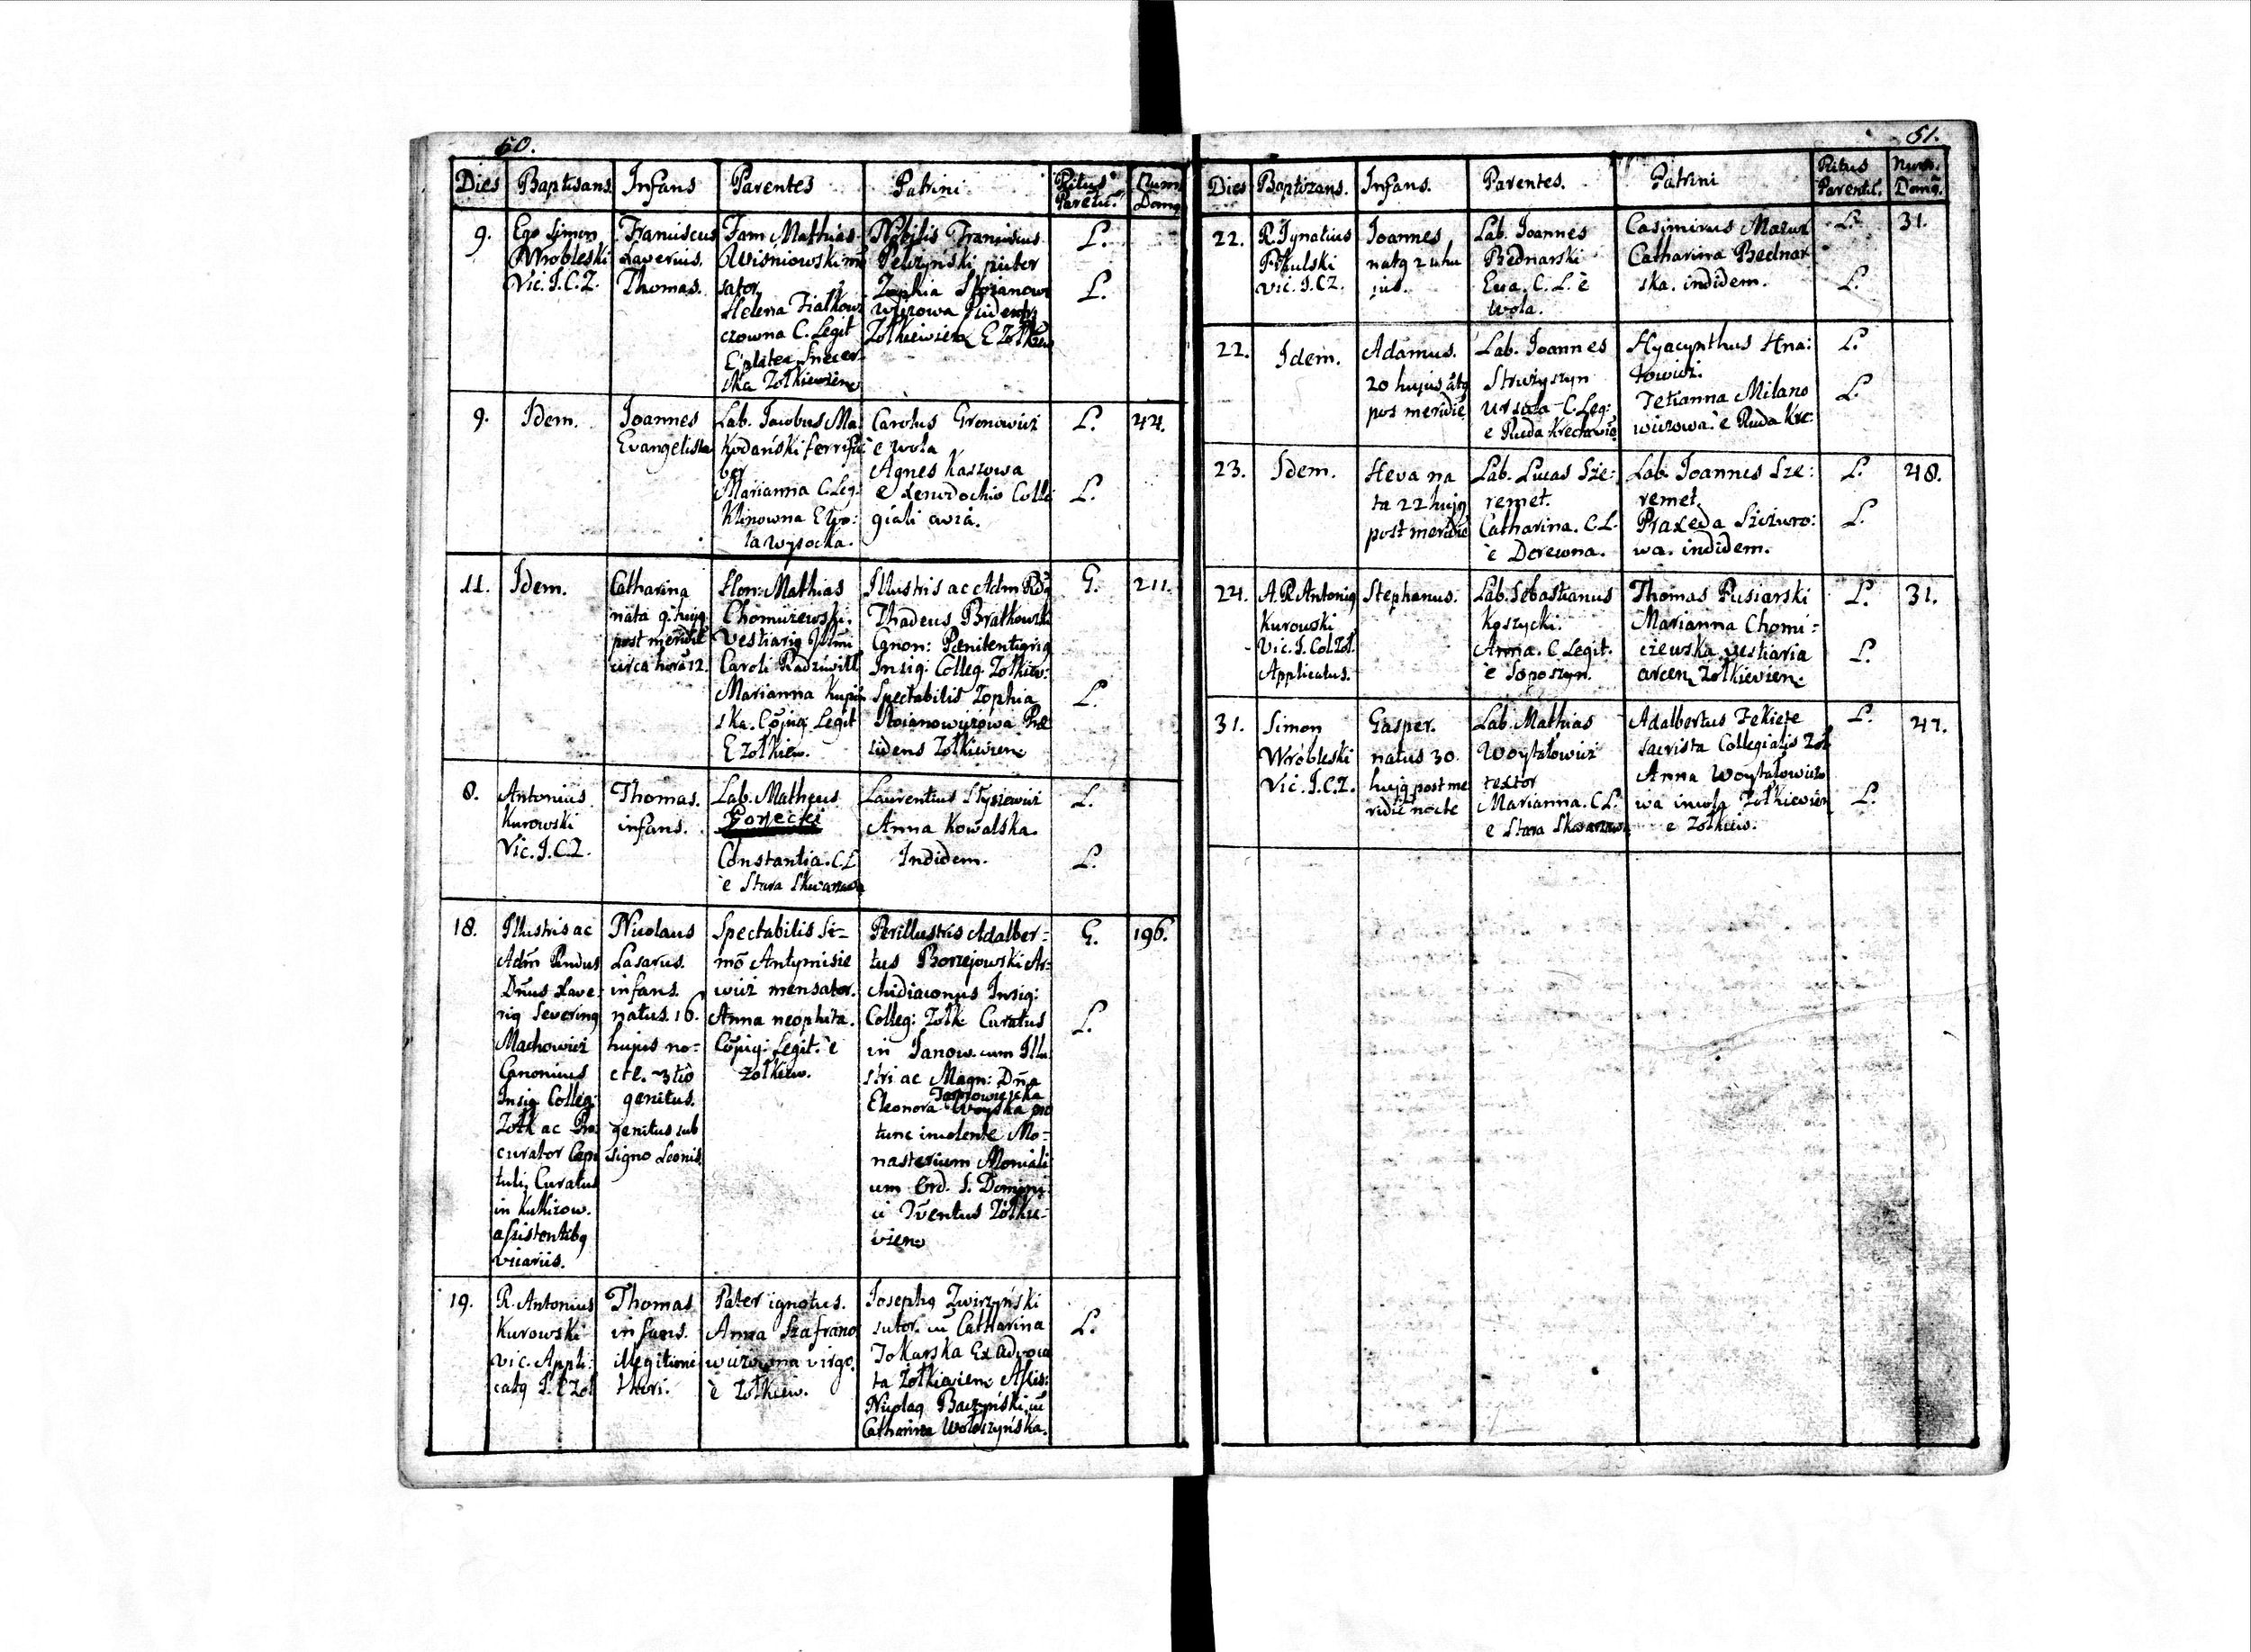 60.
Dies Baptisans. Infans Parentes Patrini Ritus Parētū. Num Domq
9.
Ego Simon
Wrobleski
Vic. I. C. Z.
Franciscus
Xaverius.
Thomas.
Fam Mathias
Wisniowski
sator
Helena Fiałkow
czowna C. Legit
E platea
ska Zołkiewien
Nobilis Franciscus
Pelczyński pictor
Zophia Stoianow
iczowa
Zołkieviens E Zołkiew
L.
L.
9.
Idem.
Joannes
Evangelista
Lab. Jacobus Ma
kodański ferrifa
ber
Marianna C. Leg.
Klinowna E Wo:
la Wysocka.
Carolus Gronowicz
è Wola
Agnes Kaszowa
e Xenodochio Colle
giali
L.
L.
44.
11.
Idem.
Catharina
nata 9. hujq
post meridiē
circa horā 12.
Hon: Mathias
Chomiczewski.
Vestiariq
Caroli Radziwiłł
Marianna Kupiń
ska. Cōjuq: Legit
E Zołkiew.
Illustris ac Adm Rdq
Thadeus Bratkowski
Canon: Pœnitentiariq
Insig: Colleg. Zołkiew:
Spectabilis Zophia
Stoianowiczowa Præ
sidens Zołkievien
G.
L.
211.
8.
Antonius
Kurowski
Vic. I. C. Z.
Thomas.
infans.
Lab. Matheus
Gorecki
Constantia. C. L
è Stara Skwarzawa
Laurentius Stysiewicz
Anna Kowalska.
Indidem.
L.
L.
18.
Illustris ac
Adm̄ Rndus
Dnus Xave
riq Severinq
Machowicz
Canonicus
Insig Colleg:
Zołk ac Pro
curator Capi
tuli, Curatus
in Kulikow.
assistentibq
vicariis.
Nicolaus
Lasarus.
infans.
natus. 16.
hujus no:
cte. 3tio
genitus.
genitus sub
signo Leonis
Spectabilis Si-
mō Antymisie
wicz mensator.
Anna neophita.
Cōjuq: Legit. è
Zołkiew.
Perillustris Adalber:
tus Borzejowski Ar:
chidiaconus Insig:
Colleg: Zołk Curatus
in Janow. cum Illu
stri ac Magn: Dn̄a
Eleonora Woyska pro
tunc incolente Mo:
nasterium Moniali
um Ord. S. Domini
ci Zołkie:
vien
G.
L.
196.
19.
R. Antonius
Kurowski
vic. Appli:
catq I. C Zoł
Thomas
infans.
illegitimi
thori.
Pater ignotus.
Anna Szafrano
wiczowna virgo.
è Zołkiew.
Josephq Zwirzyński
sutor. cū Catharina
Tokarska Ex advoca
ta Zołkievien Assis:
Nicolaq Baczyński, cū
Catharina Wołoszyńska.
L.
51.
Dies Baptizans. Infans. Parentes. Patrini Ritus Parentū. Num. Domq.
22.
R. Ignatius
Pikulski
Vic. I. C Z.
Joannes
natq 2
jus.
Lab. Joannes
Bednarski
Eva. C. L. è
Wola.
Casimirus Mazur
Catharina Bednar
ska. indidem.
L.
L.
31.
22.
Idem.
Adamus.
20 hujus
pos meridiē
Lab. Joannes
Strużyszyn
Ursula C. Leg:
e Ruda Krechowie
Hyacynthus Hna:
towicz.
Tetianna Milano
wiczowa. è Ruda Kre:
L.
L.
23.
Idem.
Heva na
ta 22 hujq
post meridiē
Lab. Lucas Sze:
remet.
Catharina. C. L.
è Derewna.
Lab. Joannes Sze:
remet.
Praxeda Szczuro:
wa. indidem.
L.
L.
48.
24.
A. R Antoniq
Kurowski
Vic. I. Col Zoł.
Applicatus.
Stephanus.
Lab. Sebastianus
Koszycki.
Anna. C Legit.
è Soposzyn.
Thomas Pusiarski
Marianna Chomi:
czewska vestiaria
arcen Zołkievien.
L.
L.
31.
31.
Simon
Wrobleski
Vic. I. C. Z.
Gasper.
natus 30.
hujq post me
ridiē nocte
Lab. Mathias
Woytałowicz
textor
Marianna. C L.
e Stara Skwarzawa
Adalbertus Fekiete
sacrista Collegiatis Zoł
Anna Woytałowiczo
wa incola Zołkievien
e Zołkiew.
L.
L.
47.